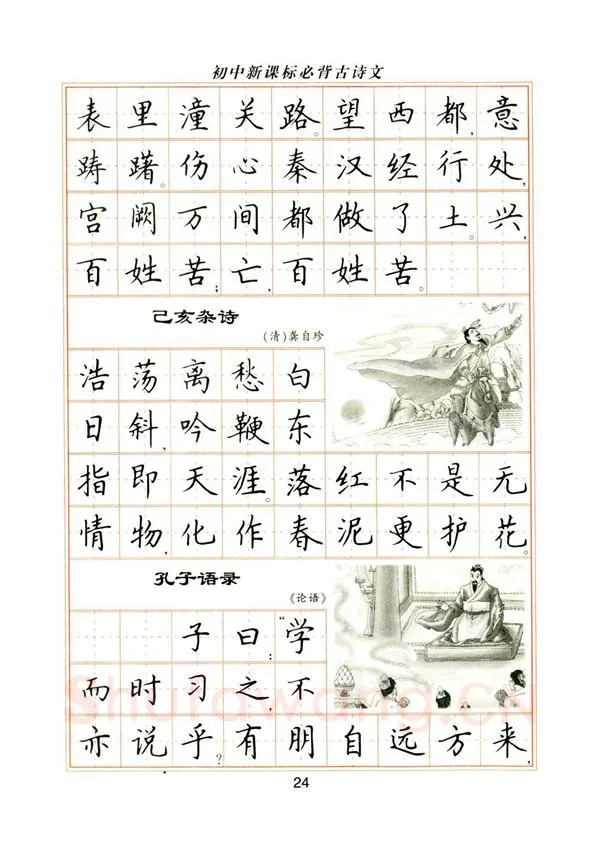 初中新课标必背古诗文
表里潼关路。望西都,意
踌躇。伤心秦汉经行处,
宫阙万间都做了土。兴,
百姓苦;亡,百姓苦。
己亥杂诗
(清)龚自珍
浩荡离愁白
日斜,吟鞭东
指即天涯。落红不是无
情物,化作春泥更护花。
孔子语录
《论语》
子曰:“学
而时习之,不
亦说乎?有朋自远方来,
Shufawang.CN
24